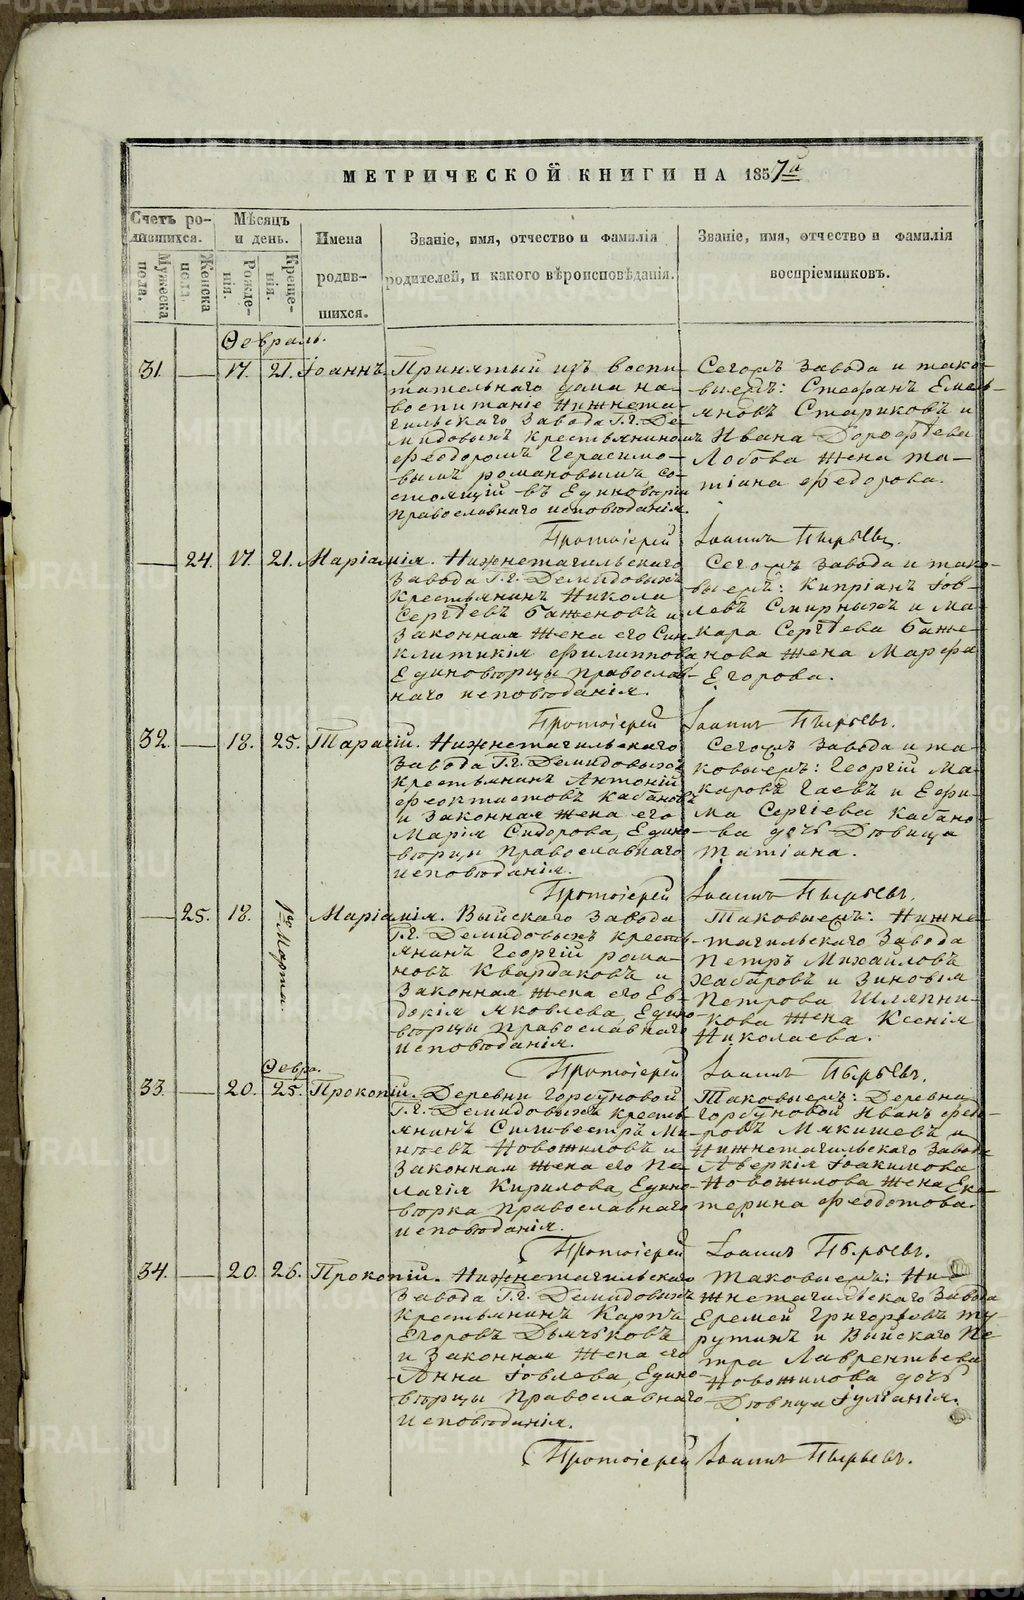 МЕТРИЧЕСКОЙ КНИГИ НА 1857й
Счетъ родившихся.
Мѣсяцъ и день.
Имена родившихся.
Званіе, имя, отчество и фамилія родителей, и какого вѣроисповѣданія.
Званіе, имя, отчество и фамилія воспріемниковъ.
Мужеска пола.
Женска пола.
Рожденія.
Крещенія.
Февраль.
31. — 17. 21. Іоаннъ.
Принятый изъ воспи-
тательнаго дома на
воспитаніе Нижнета-
гильскаго Завода Г.г. Де-
мидовыхъ крестьяниномъ
Феодоромъ Герасимо-
вымъ Романовымъ со-
стоящій въ Единовѣріи
Православнаго исповѣданія.
Сегожъ завода и тако-
выежъ: Стефанъ Емель-
яновъ Стариковъ и
Ивана Дорофѣева
Лобова жена Та-
тіана Федорова.
Протоіерей Іоаннъ Пырьевъ.
— 24. 17. 21. Маріамія.
Нижнетагильскаго
Завода Г.г. Демидовыхъ
Крестьянинъ Никола
Сергѣевъ Баженовъ и
Законная жена его Син-
клитикія Филиппова
Единовѣрцы Православ-
наго исповѣданія.
Сегожъ завода и тако-
выежъ: Кипріанъ Іов-
левъ Смирныхъ и Ма-
кара Сергѣева Баже-
нова жена Марфа
Егорова.
Протоіерей Іоаннъ Пырьевъ.
32. — 18. 25. Тарасій.
Нижнетагильскаго
Завода Г.г. Демидовыхъ
Крестьянинъ Антоній
Феоктистовъ Кабановъ
и Законная жена его
Марія Сидорова, Едино-
вѣрцы Православнаго
исповѣданія.
Сегожъ Завода и та-
ковыежъ: Георгій Ма-
каровъ Гаевъ и Ефи-
ма Сергіева Кабано-
ва дочь Дѣвица
Татіана.
Протоіерей Іоаннъ Пырьевъ.
— 25. 18. 1го Марта. Маріамія.
Выйскаго Завода
Г.г. Демидовыхъ кресть-
янинъ Георгій Рома-
новъ Квардаковъ и
Законная жена его Ев-
докія Яковлева, Едино-
вѣрцы Православнаго
исповѣданія.
Таковыежъ: Нижне-
тагильскаго Завода
Петръ Михайловъ
Хабаровъ и Зиновья
Петрова Шляпни-
кова жена Ксенія
Николаева.
Протоіерей Іоаннъ Пырьевъ.
Февра.
33. — 20. 25. Прокопій.
Деревни Горбуновой
Г.г. Демидовыхъ кресть-
янинъ Силивестръ Ми-
нѣевъ Новожиловъ и
Законная жена его Пе-
лагія Кирилова, Едино-
вѣрка Православнаго
исповѣданія.
Таковыежъ: Деревни
Горбуновой Иванъ Федо-
ровъ Мякишевъ и
Нижнетагильскаго Завода
Аверкія Іоакимова
Новожилова жена Ека-
терина Феодотова.
Протоіерей Іоаннъ Пырьевъ.
34. — 20. 26. Прокопій.
Нижнетагильскаго
Завода Г.г. Демидовыхъ
Крестьянинъ Карпъ
Егоровъ Дьячковъ
и Законная жена его
Анна Іовлева, Едино-
вѣрцы Православнаго
исповѣданія.
Таковыежъ: Ни-
жнетагильскаго Завода
Еремей Григорьевъ
и Выйскаго Пе-
тра Лаврентьева
Новожилова дочь
Дѣвица Іуліанія.
Протоіерей Іоаннъ Пырьевъ.
METRIKI.GASO-URAL.RU